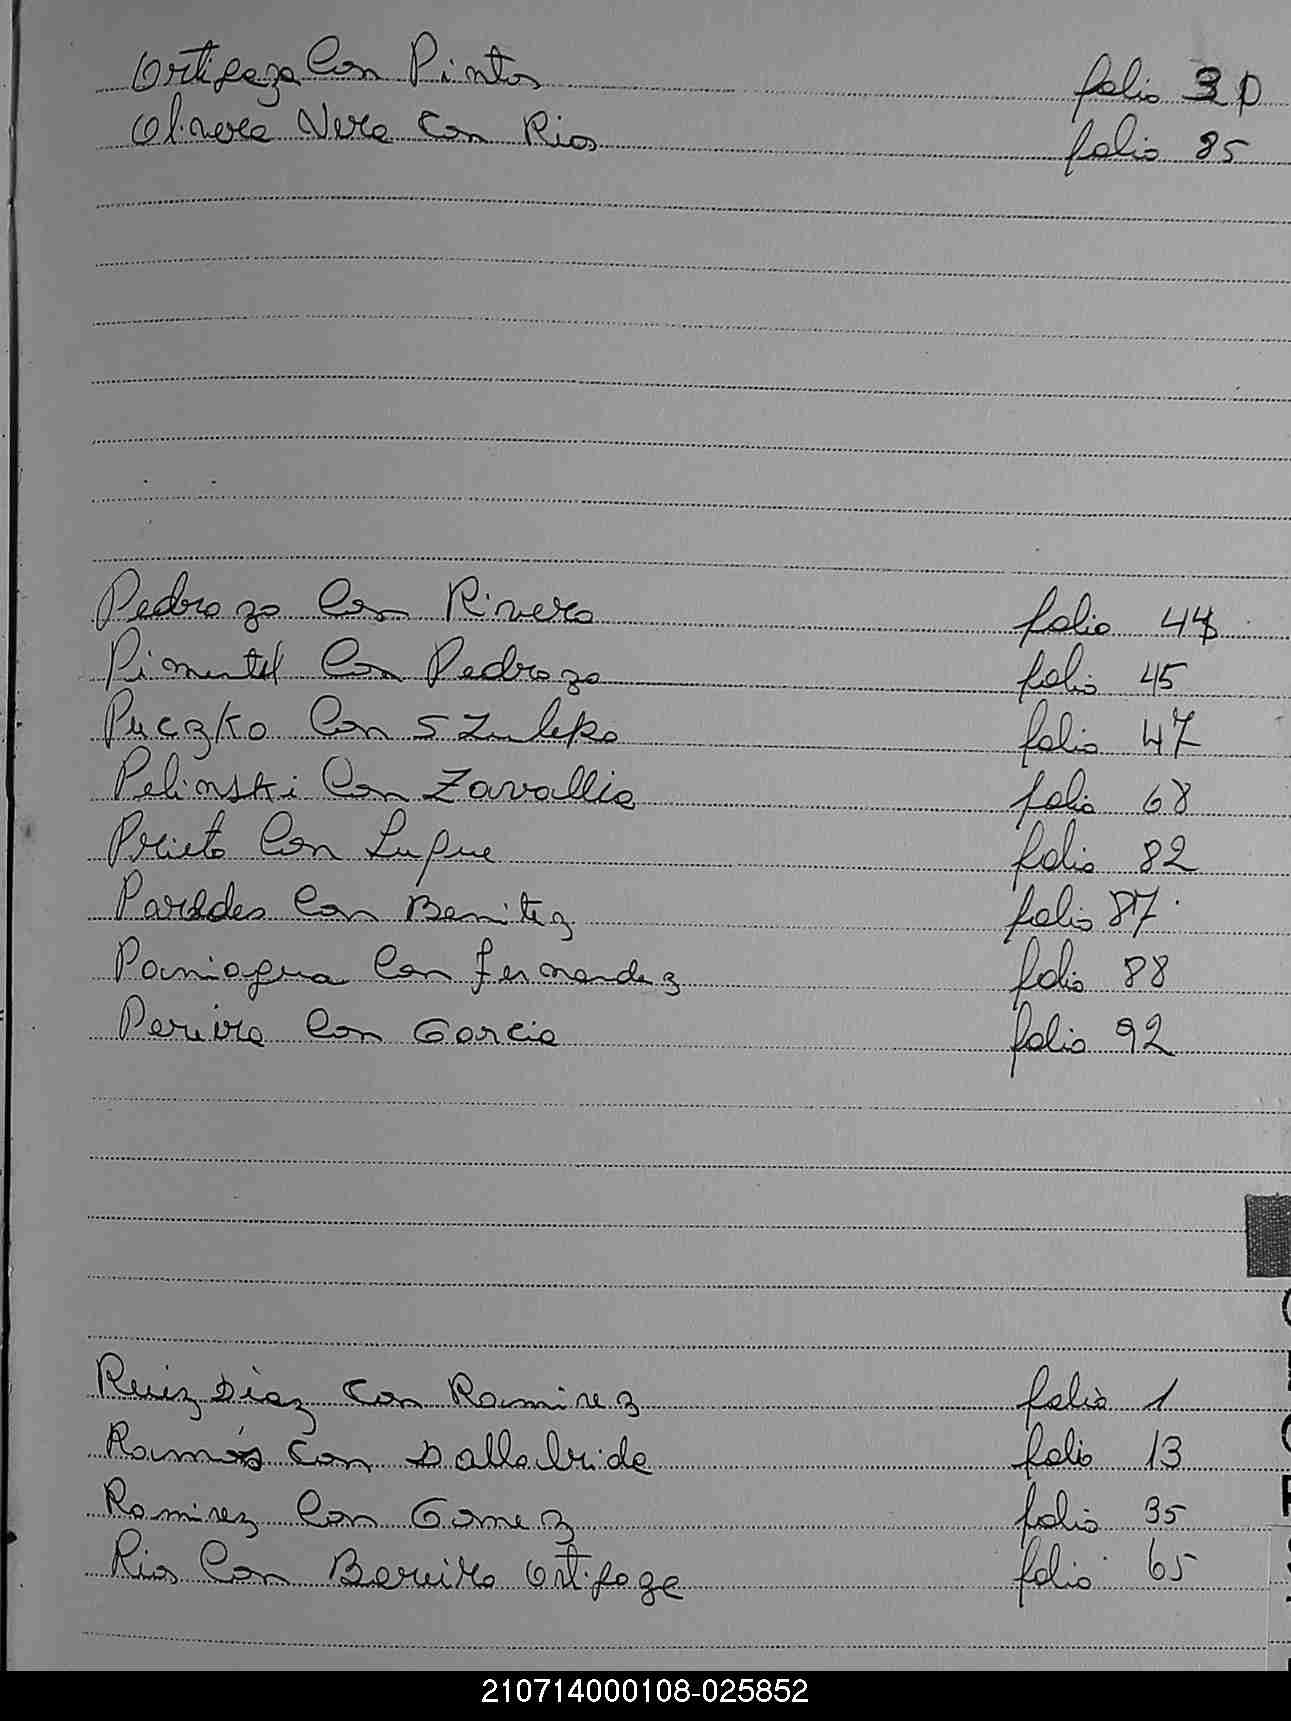 Ortigoza Con Pintos folio 32
Olivera Vera Con Rios folio 85
Pedrozo Con Rivero folio 44
Pimentel Con Pedrozo folio 45
Puczko Con Szulepa folio 47
Pelinski Con Zavallia folio 68
Prieto Con Luque folio 82
Paredes Con Benitez folio 87
Paniagua Con fernandez folio 88
Pereira Con Garcia folio 92
Ruiz Diaz Con Ramirez folio 1
Ramos Con Dallabrida folio 13
Ramirez Con Gomez folio 35
Rios Con Bareiro Ortigoza folio 65
210714000108-025852